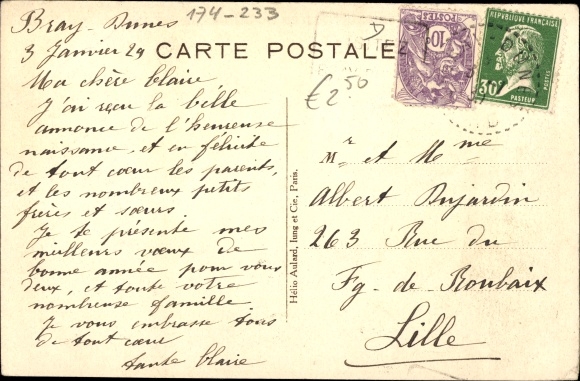 Bray-Dunes
174-233
3 Janvier 29
CARTE POSTALE
Ma chère Claire
J'ai reçu la belle
annonce de l'heureuse
naissance, et en félicite
de tout coeur les parents,
et les nombreux petits
frères et soeurs.
Je te présente mes
meilleurs voeux de
bonne année pour vous
deux, et toute votre
nombreuse famille.
Je vous embrasse tous
de tout coeur
tante Claire
€ 2.50
POSTES
10
RÉPUBLIQUE FRANÇAISE
30c
POSTES
PASTEUR
Hélio Aulard, Iung et Cie, Paris.
Mr et Mme
Albert Dujardin
263 Rue du
Fg-de-Roubaix
Lille